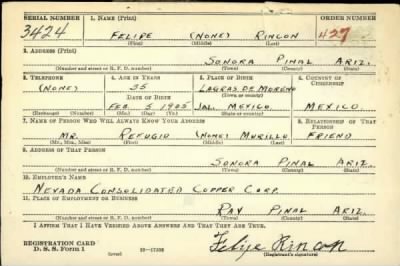 SERIAL NUMBER 1. NAME (Print) ORDER NUMBER
3424 FELIPE (NONE) RINCON 427
(First) (Middle) (Last)
2. ADDRESS (Print)
SONORA PINAL ARIZ.
(Number and street or R. F. D. number) (Town) (County) (State)
3. TELEPHONE 4. AGE IN YEARS 5. PLACE OF BIRTH 6. COUNTRY OF CITIZENSHIP
(NONE) 35 LAGRAS DE MORENO
DATE OF BIRTH (Town or county)
FEB. 5 1905 JAL. MEXICO. MEXICO.
(Exchange) (Number) (Mo.) (Day) (Yr.) (State or country)
7. NAME OF PERSON WHO WILL ALWAYS KNOW YOUR ADDRESS 8. RELATIONSHIP OF THAT PERSON
MR. REFUGIO (NONE) MURILLO FRIEND
(Mr., Mrs., Miss) (First) (Middle) (Last)
9. ADDRESS OF THAT PERSON
SONORA PINAL ARIZ.
(Number and street or R. F. D. number) (Town) (County) (State)
10. EMPLOYER'S NAME
NEVADA CONSOLIDATED COPPER CORP.
11. PLACE OF EMPLOYMENT OR BUSINESS
RAY PINAL ARIZ.
(Number and street or R. F. D. number) (Town) (County) (State)
I AFFIRM THAT I HAVE VERIFIED ABOVE ANSWERS AND THAT THEY ARE TRUE.
REGISTRATION CARD
D. S. S. Form 1 (over) Felipe Rincon
(Registrant's signature)